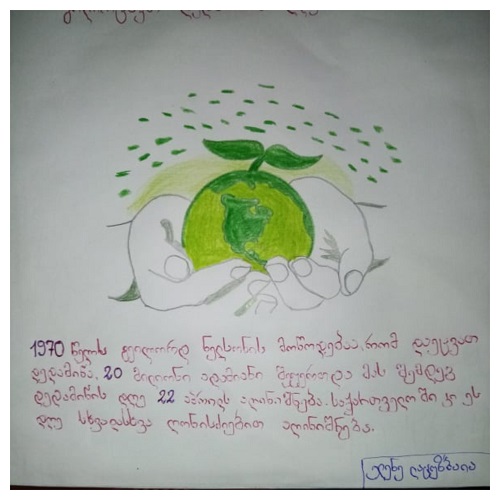 გილოცავთ დედამიწის დღეს
1970 წელს გეილორდ ნელსონის მოწოდებაა, რომ დაეცვათ
დედამიწა. 20 მილიონი ადამიანი შეუერთდა მას შემდეგ
დედამიწის დღე 22 აპრილს აღინიშნება. საქართველოში კი ეს
დღე სხვადასხვა ღონისძიებით აღინიშნება.
ელენე